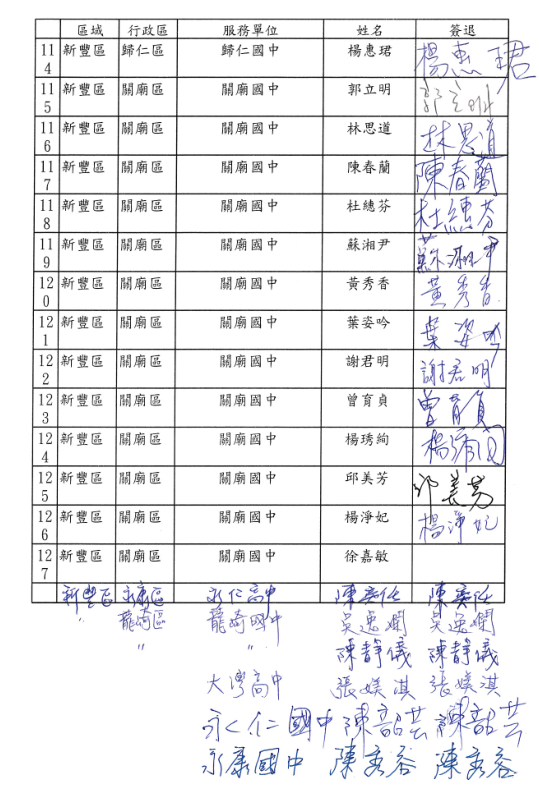 區域 行政區 服務單位 姓名 簽退
114 新豐區 歸仁區 歸仁國中 楊惠珺 楊惠珺
115 新豐區 關廟區 關廟國中 郭立明 郭立明
116 新豐區 關廟區 關廟國中 林思道 林思道
117 新豐區 關廟區 關廟國中 陳春蘭 陳春蘭
118 新豐區 關廟區 關廟國中 杜繐芬 杜繐芬
119 新豐區 關廟區 關廟國中 蘇湘尹 蘇湘尹
120 新豐區 關廟區 關廟國中 黃秀香 黃秀香
121 新豐區 關廟區 關廟國中 葉姿吟 葉姿吟
122 新豐區 關廟區 關廟國中 謝君明 謝君明
123 新豐區 關廟區 關廟國中 曾育貞 曾育貞
124 新豐區 關廟區 關廟國中 楊琇絢 楊琇絢
125 新豐區 關廟區 關廟國中 邱美芳 邱美芳
126 新豐區 關廟區 關廟國中 楊淨妃 楊淨妃
127 新豐區 關廟區 關廟國中 徐嘉敏
新豐區 永康區 永仁高中 陳奕任 陳奕任
〃 龍崎區 龍崎國中 吳逸嫻 吳逸嫻
〃 〃 陳靜儀 陳靜儀
大灣高中 張媄淇 張媄淇
永仁國中 陳韶芸 陳韶芸
永康國中 陳秀容 陳秀容